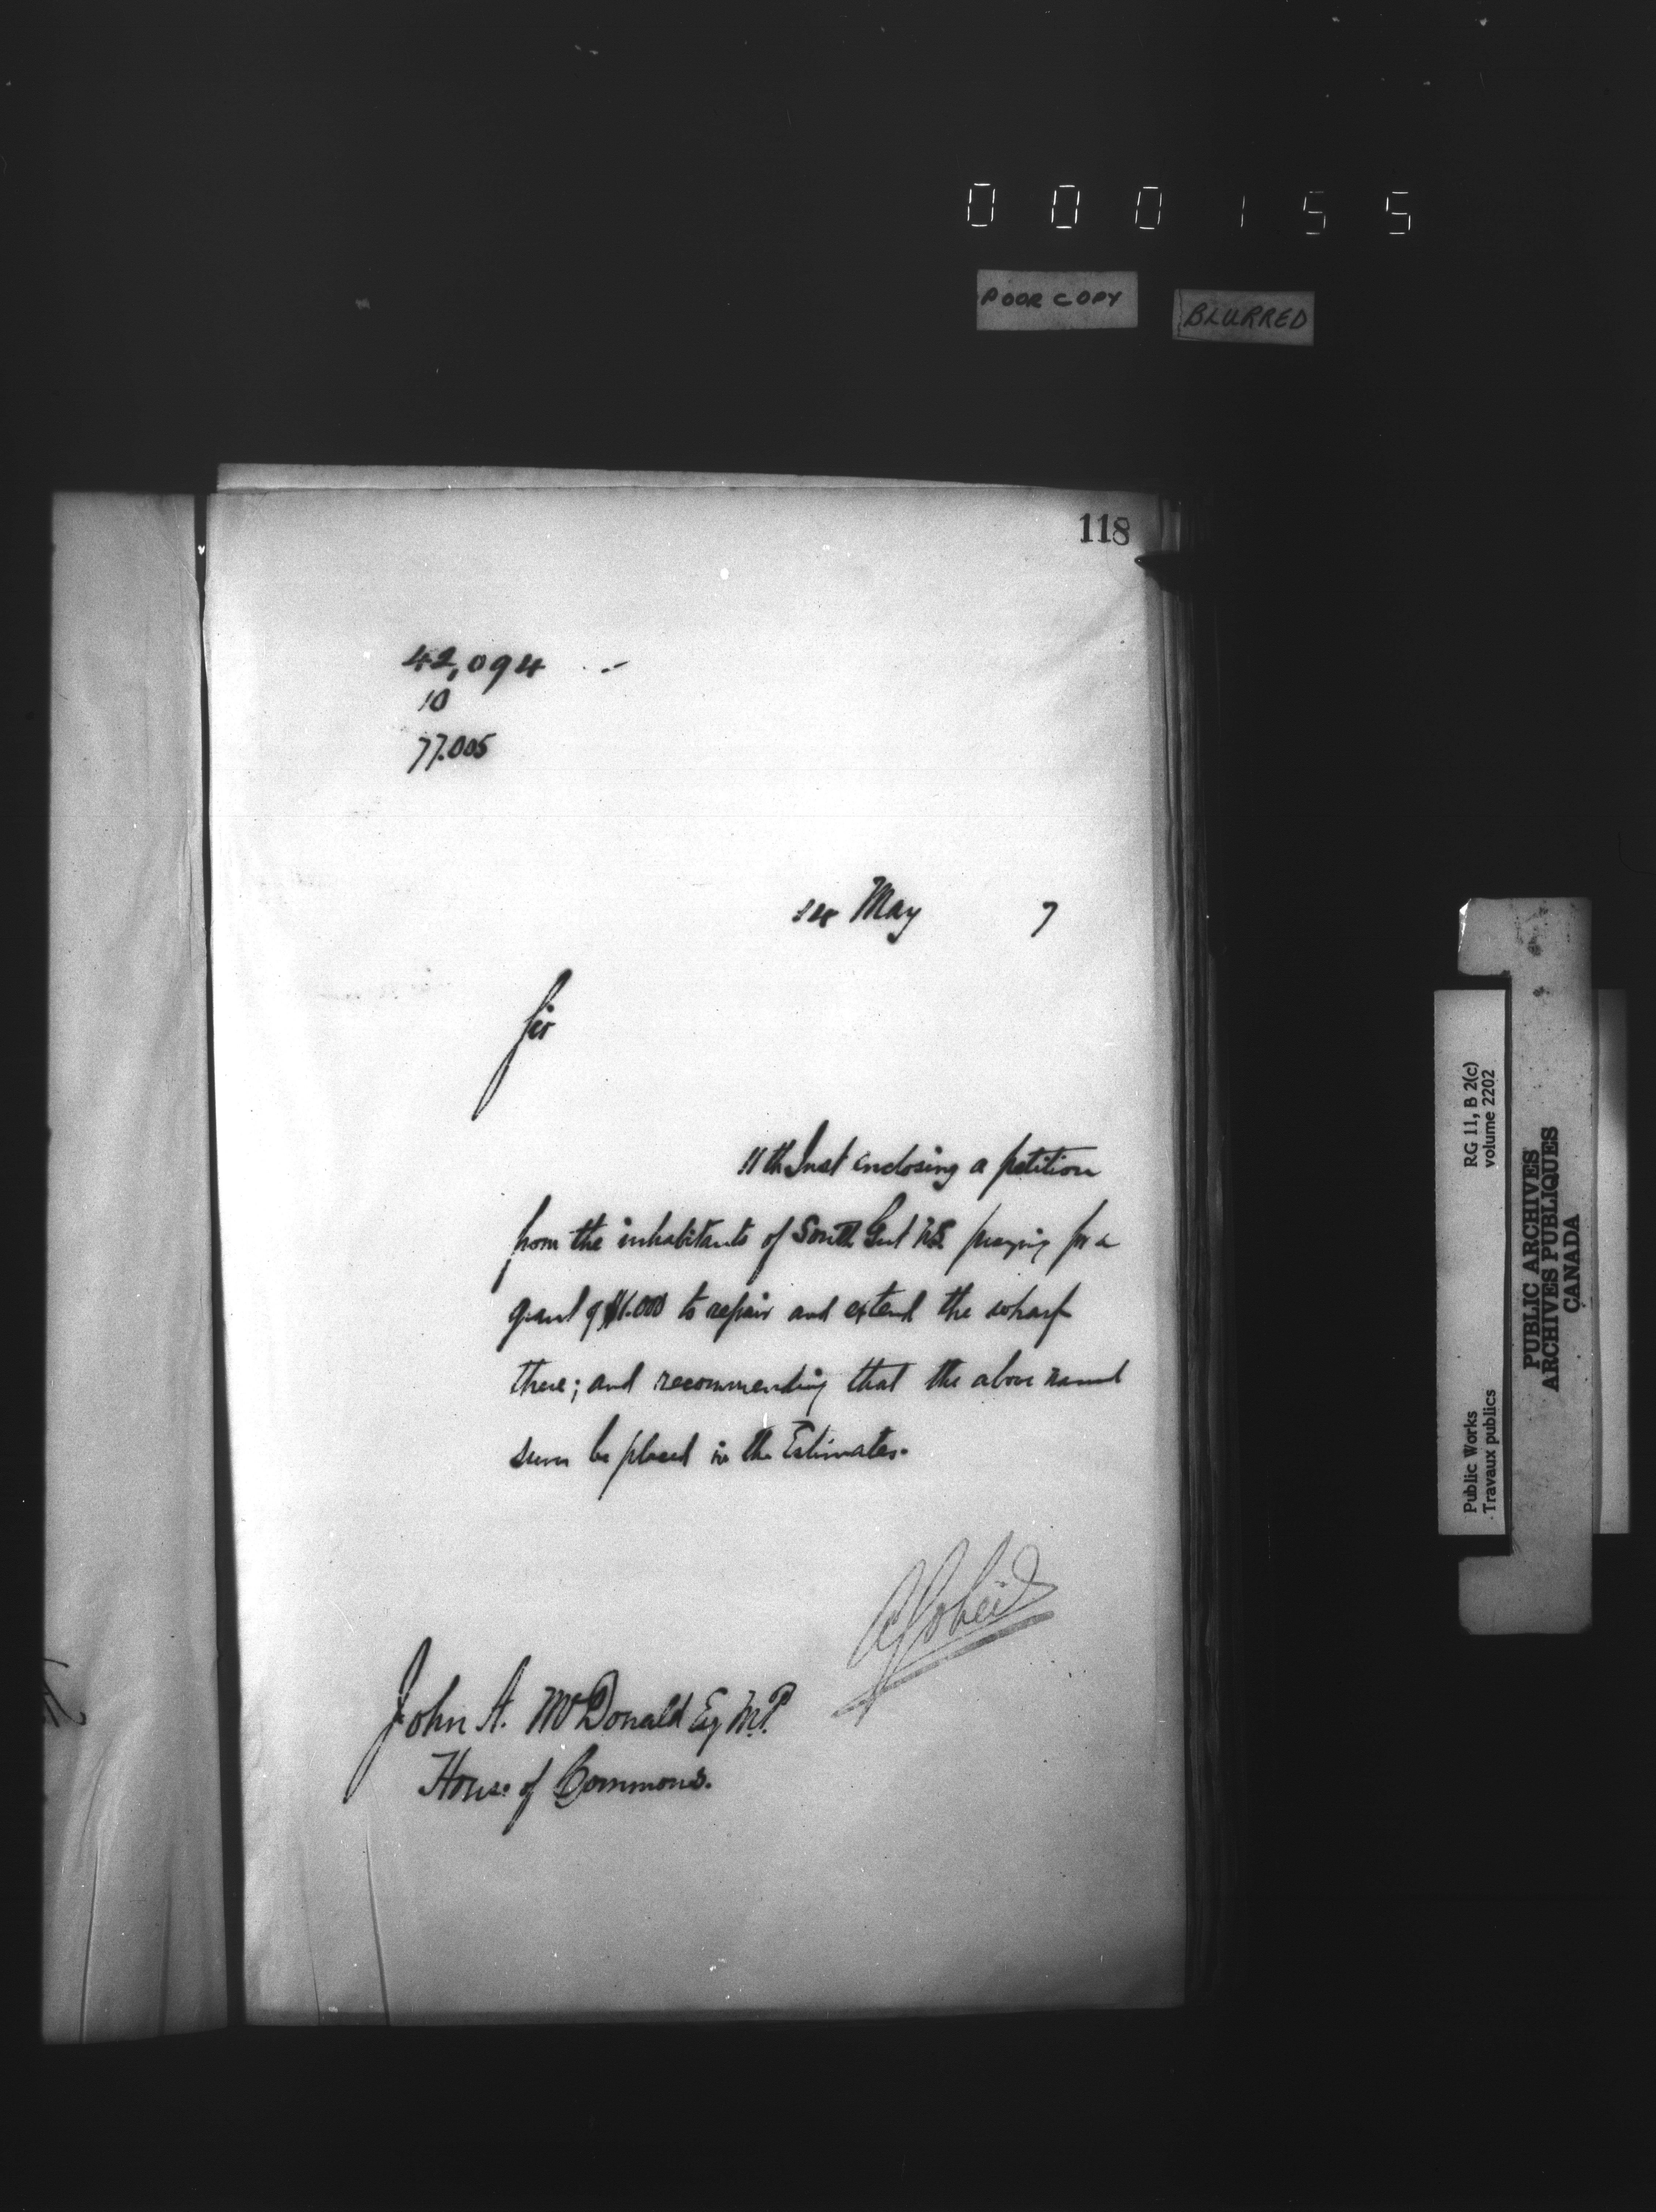 000155
POOR COPY
BLURRED
118
42,094
10
77.005
May 7
Sir
11th Inst enclosing a petition
from the inhabitants of South Gut N.S. praying for a
grant of $1.000 to repair and extend the wharf
there; and recommending that the above named
sum be placed in the Estimates.
A Gobeil
John A. McDonald Esq M.P.
House of Commons.
Public Works RG 11, B 2(c)
Travaux publics volume 2202
PUBLIC ARCHIVES
ARCHIVES PUBLIQUES
CANADA